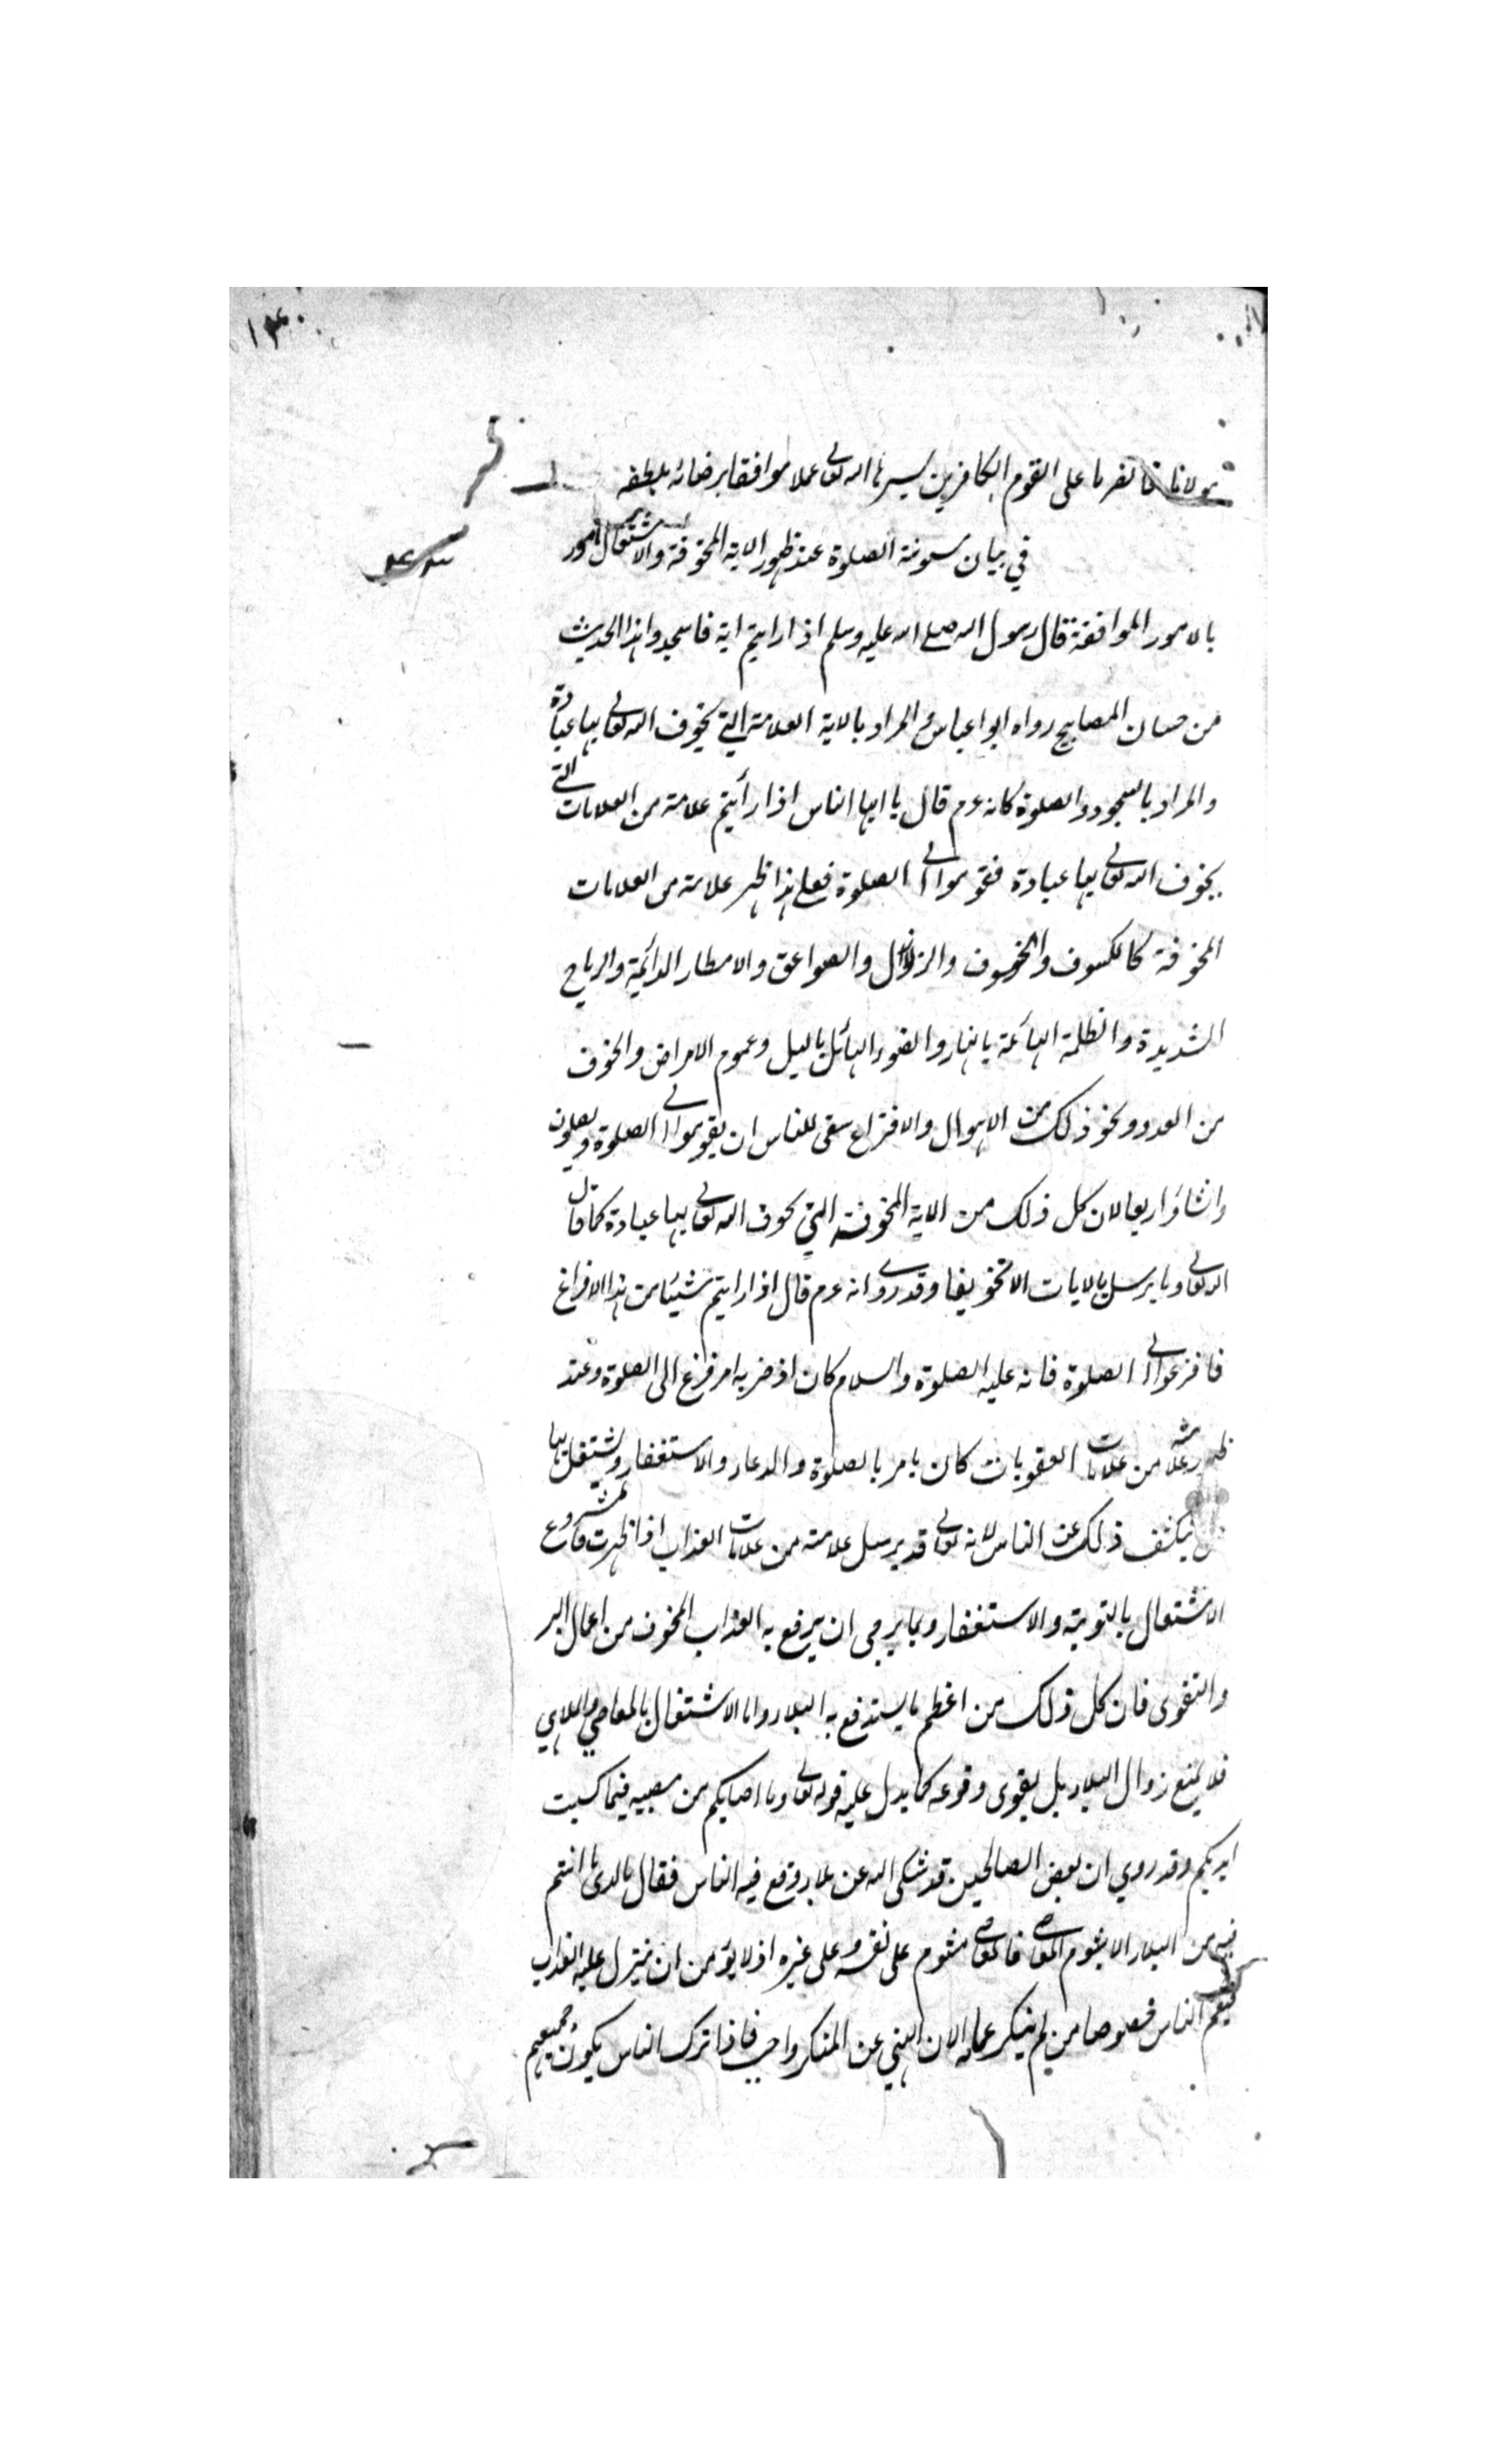 ١٣٠
مولانا فانصرنا على القوم الكافرين يسرنا الله تعالى عملا موافقا برضائه بلطفه
في بيان سونة الصلوة عند ظهور الاية المخوفة والاشتغال امور
بالامور الموافقة قال رسول الله صلى الله عليه وسلم اذا رايتم اية فاسجدوا هذا الحديث
من حسان المصابيح رواه ابوا عباس والمراد بالاية العلامة التي يخوف الله تعالى بها عبادة
والمراد بالسجود والصلوة كانه عم قال يا ايها الناس اذا رأيتم علامة من العلامات التي
يخوف الله تعالى بها عبادة فقوموا الى الصلوة فعلى هذا ظهر علامة من العلامات
المخوفة كالكسوف والخسوف والزلازل والصواعق والامطار الدائمة والرياح
الشديدة والظلمة الهائمة بالنهار والضوء الهائل بالليل وعموم الامراض والخوف
من العدو ونحو ذلك من الاهوال والافتراع سقى للناس ان يقوموا الى الصلوة ويصلون
وانشاؤا ربعا لان كل ذلك من الاية المخوفة التي يخوف الله تعالى بها عبادة كما قال
الله تعالى وما يرسل بالايات الا تخويفا وقد روى انه عم قال اذا رايتم شيئا من هذا الافراغ
فافزعوا الى الصلوة فانه عليه الصلوة والسلام كان اذ ضربه امر فزغ الى الصلوة وعند
ظهور علامة من علامات العقوبات كان يامر بالصلوة والدعاء والاستغفار ويشتغل بها
ينكشف ذلك عن الناس لانه تعالى قد يرسل علامة من علامات العذاب اذا ظهرت فالمشروع
الاشتغال بالتوبة والاستغفار وبما يرجى ان يرفع به العذاب المخوف من اعمال البر
والتقوى فان كل ذلك من اعظم ما يستدفع به البلاء واما الاشتغال بالمعاصي والملاهي
فلا يمنع زوال البلاء بل يقوى وقوعه كما يدل عليه قوله تعالى وما اصابكم من مصيبه فبما كسبت
ايديكم وقد روي ان بعض الصالحين قد شكى اليه عن بلاء وقع فيه الناس فقال ما ارى ما انتم
فيه من البلاء الا بشوم المعاصى فالمعاصى مشوم على نفسه وعلى غيره اذ لا يؤمن ان ينزل عليه العذاب
فيعم الناس خصوصا من لم ينكر عمله لان النهي عن المنكر واجب فاذا ترك الناس يكون جميعهم